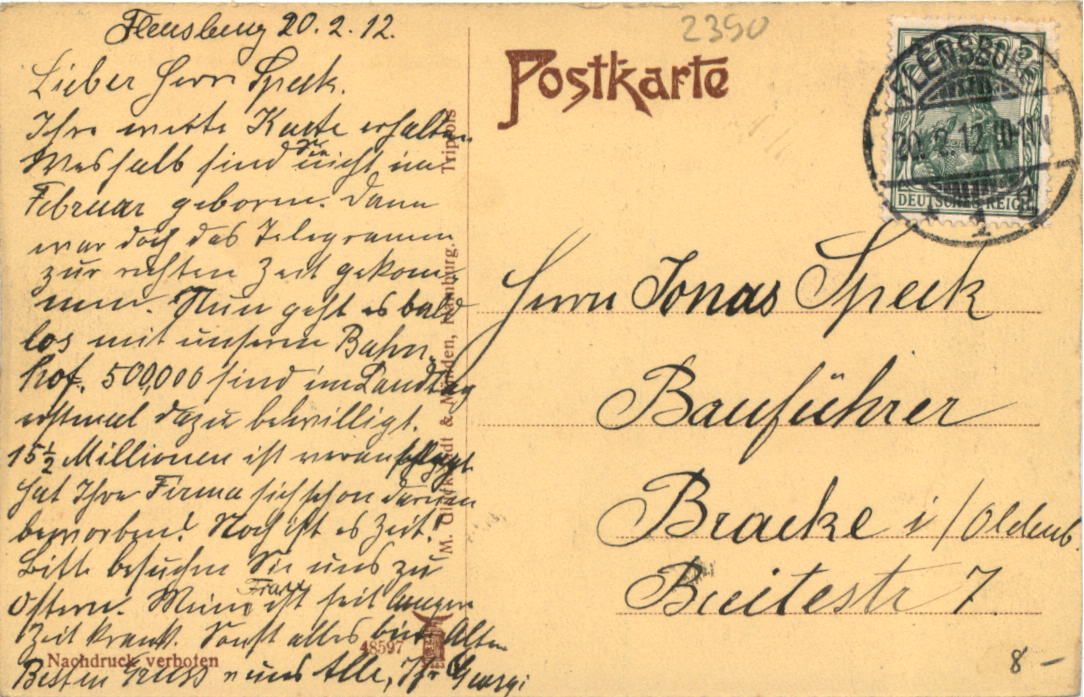 Flensburg 20.2.12.
Lieber Herr Speck.
Ihre werte Karte erhalten
Weshalb sind Sie nicht im
Februar geboren. Dann
war doch das Telegramm
zur rechten Zeit gekom-
men. Nun geht es bald
los mit unserem Bahn-
hof. 500,000 sind im Landtag
erstmal dazu bewilligt.
15½ Millionen ist veranschlagt
Hat Ihre Firma sich schon darum
beworben? Noch ist es Zeit!
Bitte besuchen Sie uns zu
Ostern! Meine Frau ist seit langer
Zeit krank. Sonst alles beim Alten
Besten Gruss v uns Alle, Ihr Georgi
Nachdruck verboten
48597
M. Glückstadt & Münden, Hamburg. Tripoli
2350
Postkarte
FLENSBURG
20.2.12.10-11N
* 1
DEUTSCHES REICH
Herrn Jonas Speck
Bauführer
Bracke i/Oldenb.
Breitestr 7.
8 –